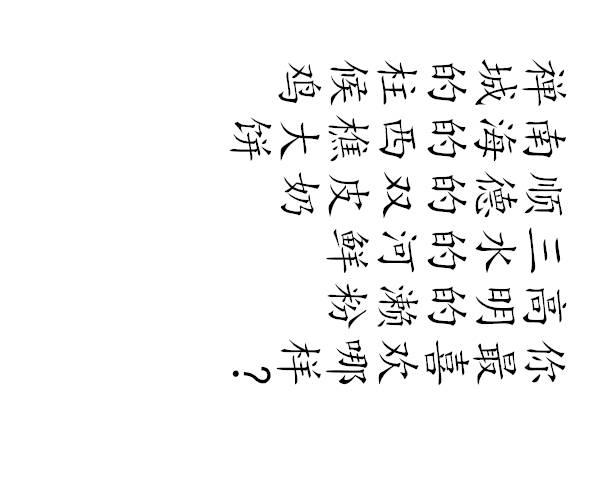 禅城的柱候鸡
南海的西樵大饼
顺德的双皮奶
三水的河鲜
高明的濑粉
你最喜欢哪样？